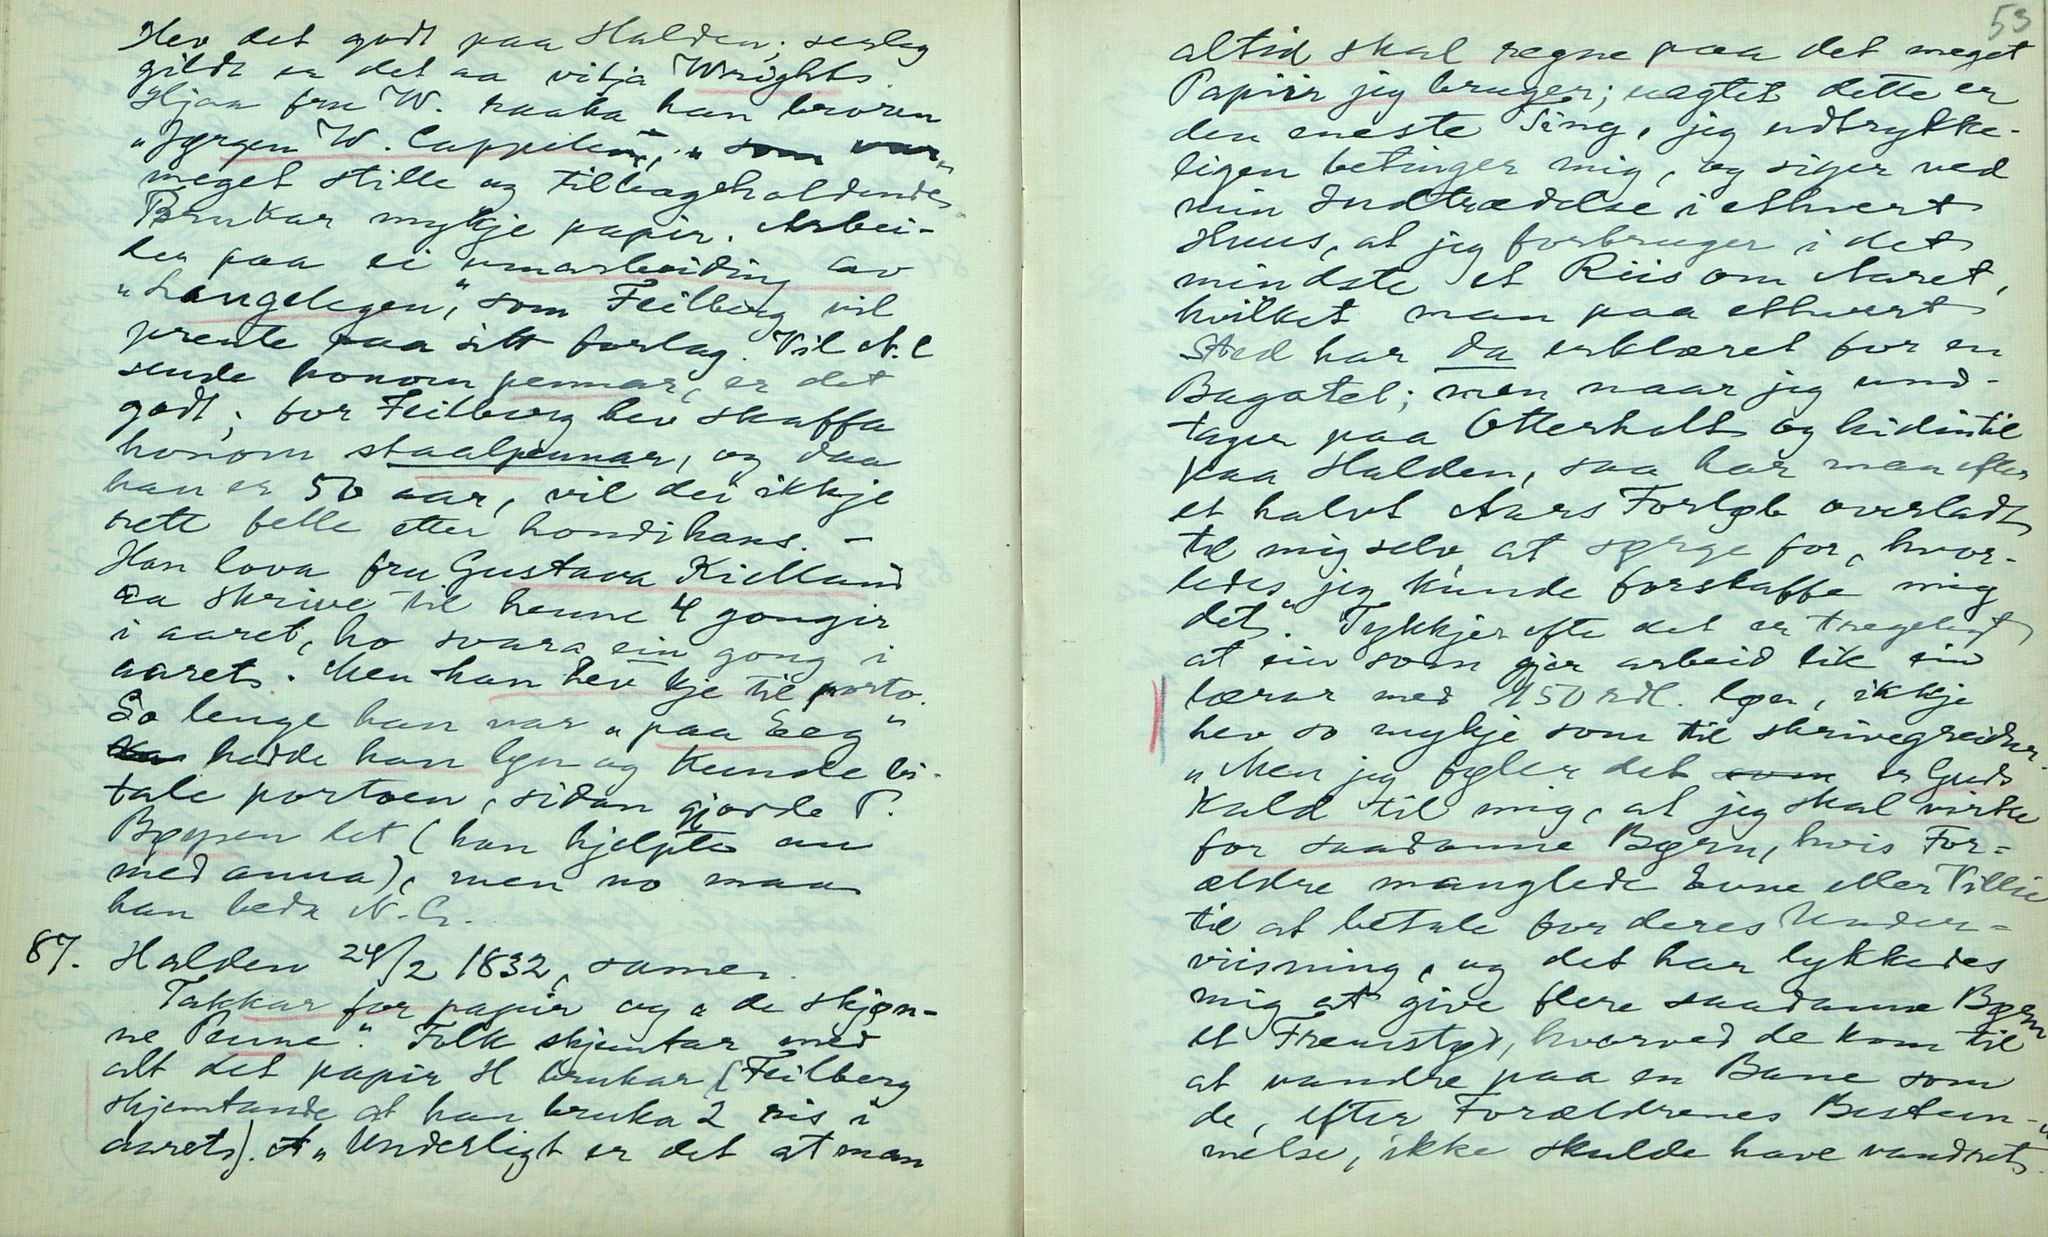 Hev det godt paa Halden; serleg
gildt er det aa vitja Wrights
Hjaa fru W. raaka han broren
"Jørgen W. Cappelen", " som var
meget stille og tilbageholdende"
Brukar mykje papir. Arbei-
der paa ei umarbeiding av
"Langelegen", som Feilberg vil
prente paa sitt forlag. Vil N. C
sende honom pennar, er det
godt; for Feilberg hev skaffa
honom staalpennar, og daa
han er 50 aar, vil dei ikkje
rett felle etter hondi hans. –
Han lova fru Gustava Kielland
aa skrive til henne 4 gongir
i aaret, ho svara ein gong i
aaret. Men han hev kje til porto.
So lenge han var "paa Eeg"
hadde han løn og kunde be-
tale portoen, sidan gjorde P.
Bøysen det (han hjelpte au
med anna), men no maa
han beda N. C.
87. Halden 24/2 1832, samer.
Takkar for papir og "de skjøn-
ne Penne". Folk skjemtar med
alt det papir H brukar (Feilberg
skjemtande at han bruka 2 ris i
aaret). "Underligt er det at man
53
altid skal regne paa det meget
Papiir jeg bruger; uagtet dette er
den eneste Ting, jeg udtrykke-
ligen betinger mig, og siger ved
min Indtrædelse i ethvert
Huus, at jeg forbruger i det
mindste et Riis om Aaret,
hvilket man paa ethvert
Sted har da erklæret for en
Bagatel; men naar jeg und-
tager paa Otterholt og hidintil
paa Halden, saa har man efter
et halvt Aars Forløb overladt
til mig selv at sørge for, hvor-
ledes jeg kunde forskaffe mig
det." Tykkjer ofte det er tregelegt
at ein som gjer arbeid lik ein
lærar med 150 rdl. løn, ikkje
hev so mykje som til skrivegreidur.
"Men jeg føler det som er Guds
Kald til mig, at jeg skal virke
for saadanne Børn, hvis For-
ældre manglede Evne eller Villie
til at betale for deres Under-
viisning, og det har lykkedes
mig at give flere saadanne Børn
et Fremstød, hvorved de kom til
at vandre paa en Bane som
de, efter Forældrenes Bestem-
melse, ikke skulde have vandret.